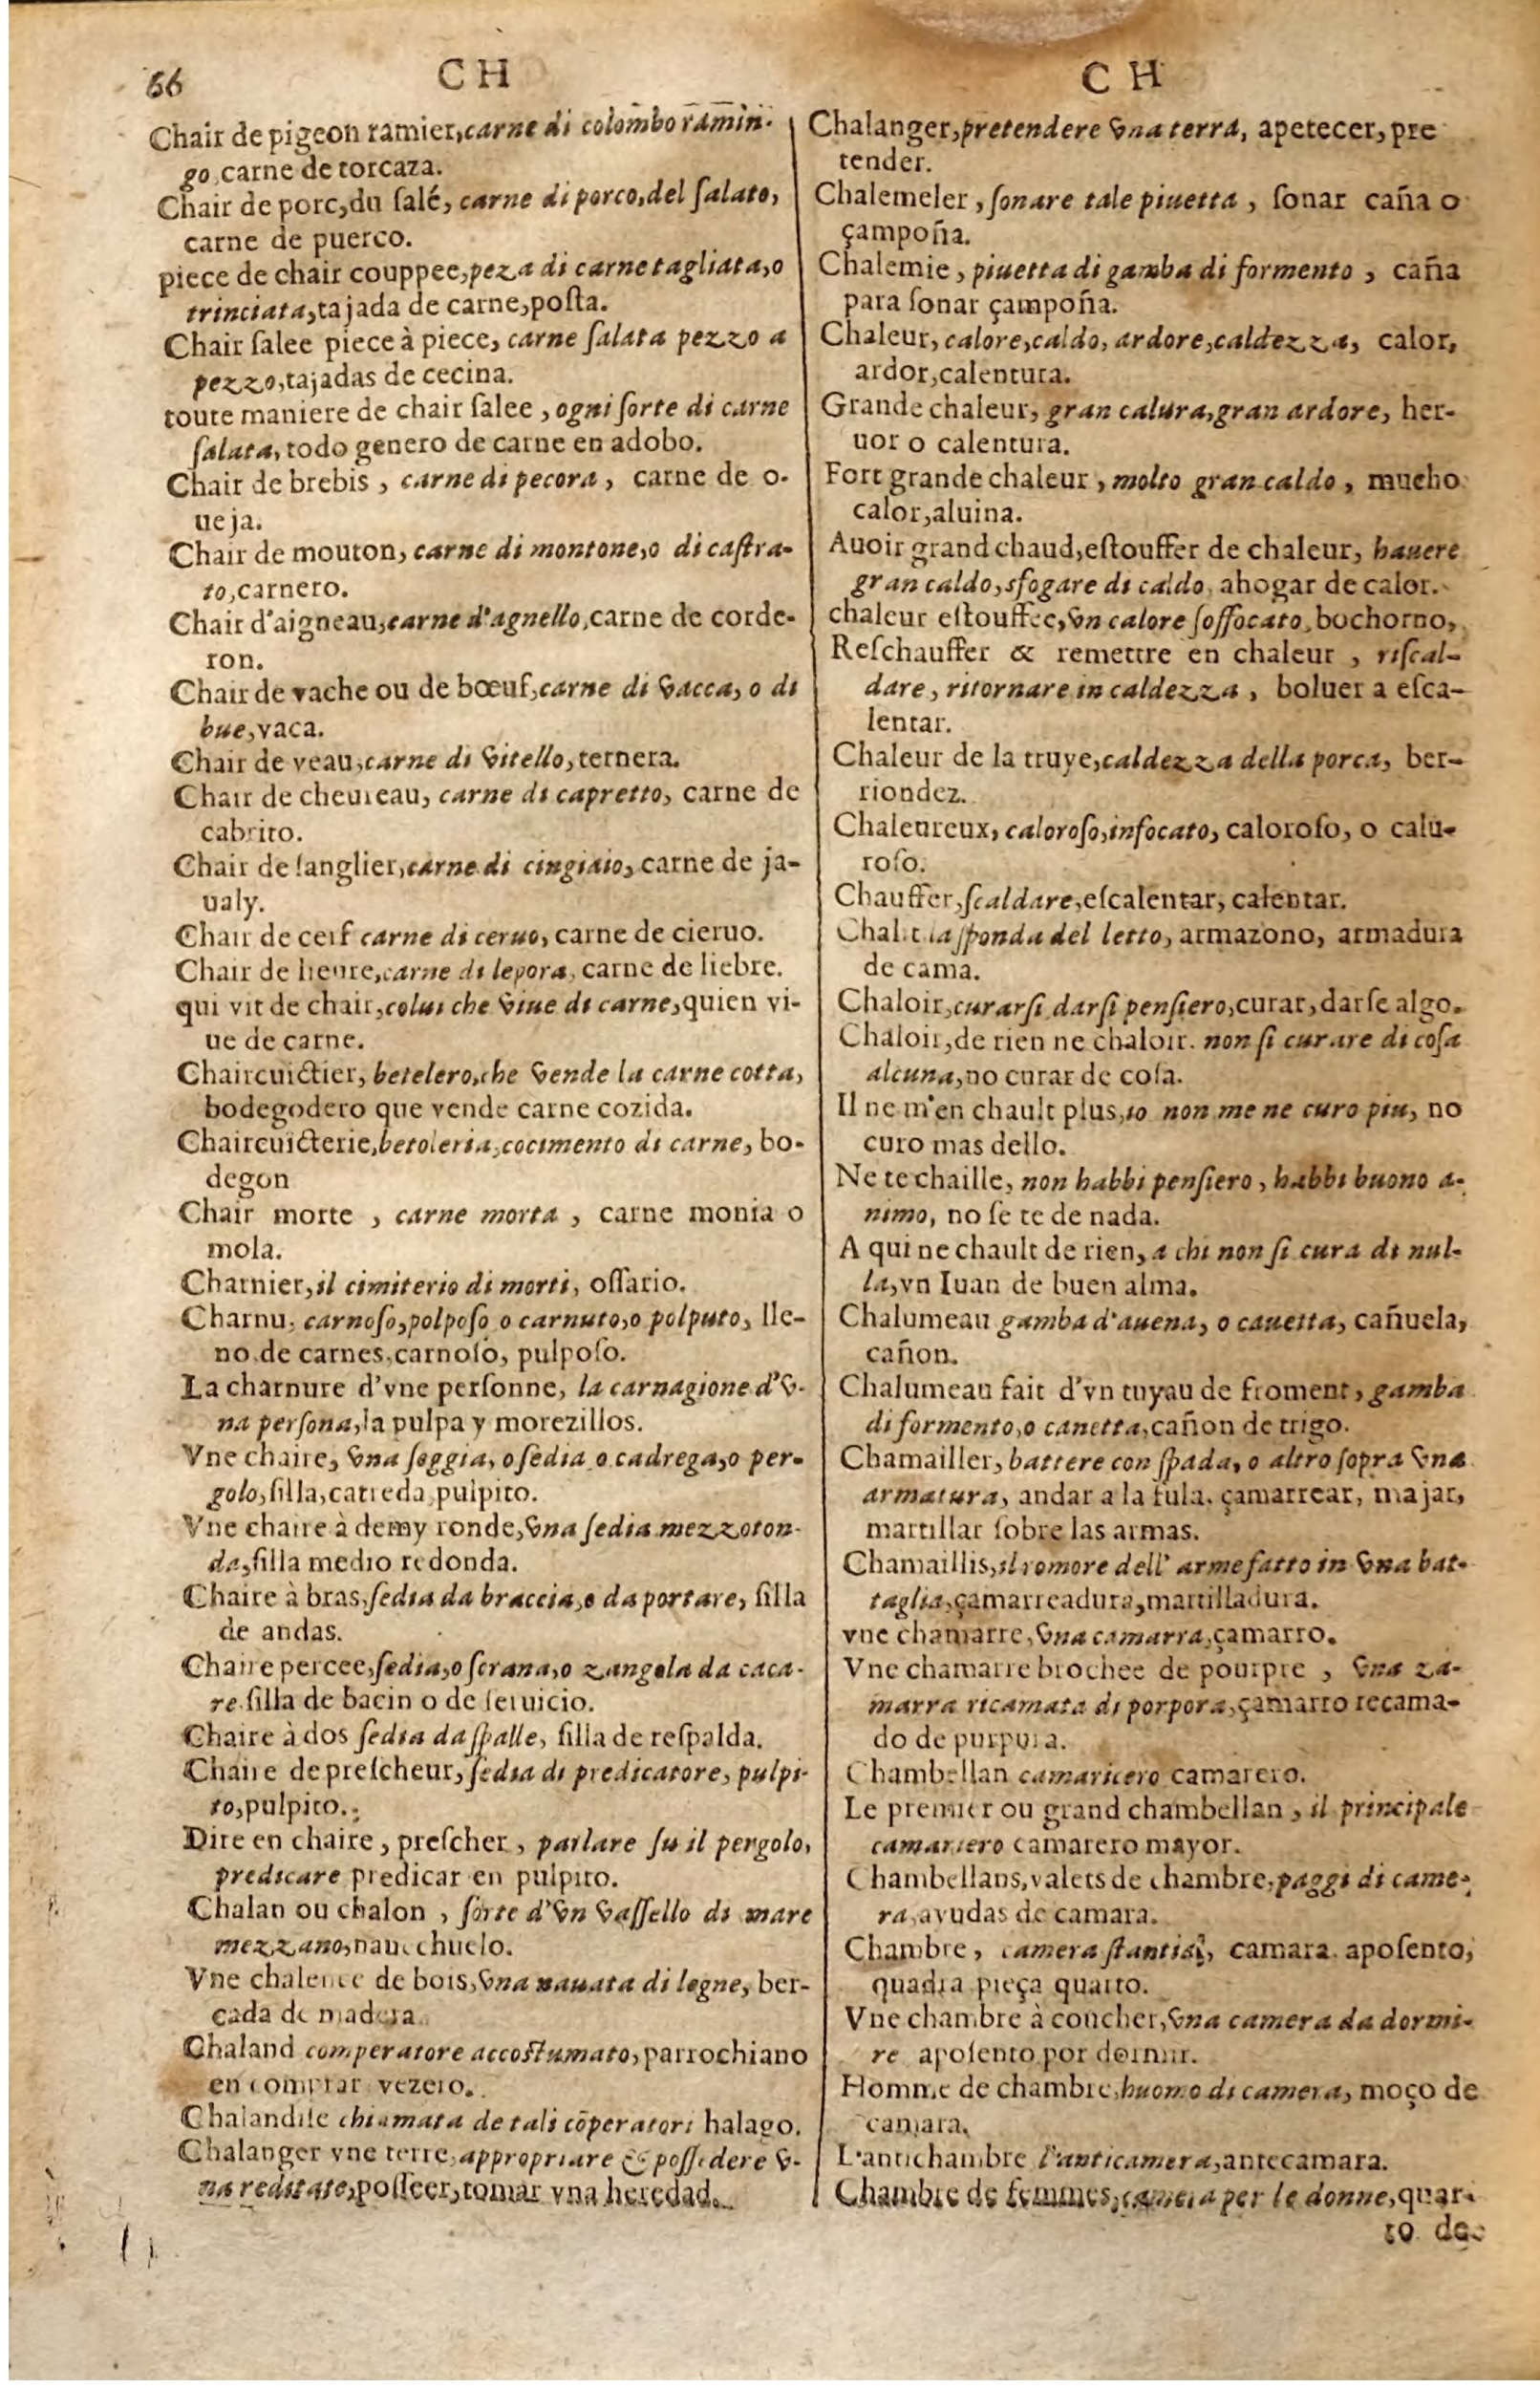 66
CH
CH
Chair de pigeon ramier, carne di colombo ramin-
go, carne de torcaza.
Chair de porc, du ſalé, carne di porco, del ſalato,
carne de puerco.
piece de chair couppee, peza di carne tagliata, o
trinciata, tajada de carne, poſta.
Chair ſalee piece à piece, carne ſalata pezzo a
pezzo, tajadas de cecina.
toute maniere de chair ſalee, ogni ſorte di carne
ſalata, todo genero de carne en adobo.
Chair de brebis, carne di pecora, carne de o-
ueja.
Chair de mouton, carne di montone, o di caſtra-
to, carnero.
Chair d'aigneau, carne d'agnello, carne de corde-
ron.
Chair de vache ou de bœuf, carne di vacca, o di
bue, vaca.
Chair de veau, carne di vitello, ternera.
Chair de cheureau, carne di capretto, carne de
cabrito.
Chair de ſanglier, carne di cingiaio, carne de ja-
ualy.
Chair de cerf carne di ceruo, carne de cieruo.
Chair de lieure, carne di lepora, carne de liebre.
qui vit de chair, colui che viue di carne, quien vi-
ue de carne.
Chaircuictier, betelero, che vende la carne cotta,
bodegodero que vende carne cozida.
Chaircuicterie, betoleria, cocimento di carne, bo-
degon
Chair morte, carne morta, carne monia o
mola.
Charnier, il cimiterio di morti, oſſario.
Charnu, carnoſo, polpoſo o carnuto, o polputo, lle-
no de carnes, carnoſo, pulpoſo.
La charnure d'vne perſonne, la carnagione d'v-
na perſona, la pulpa y morezillos.
Vne chaire, vna ſeggia, o ſedia o cadrega, o per-
golo, ſilla, catreda pulpito.
Vne chaire à demy ronde, vna ſedia mezzoton-
da, ſilla medio redonda.
Chaire à bras, ſedia da braccia, o da portare, ſilla
de andas.
Chaire percee, ſedia, o ſcrana, o zangola da caca-
re. ſilla de bacin o de ſeruicio.
Chaire à dos ſedia da ſpalle, ſilla de reſpalda.
Chaire de preſcheur, ſedia di predicatore, pulpi-
to, pulpito.
Dire en chaire, preſcher, parlare ſu il pergolo,
predicare predicar en pulpito.
Chalan ou chalon, ſorte d'vn vaſſello di mare
mezzano, nauechuelo.
Vne chalence de bois, vna nauata di legne, ber-
cada de madera.
Chaland comperatore accoſtumato, parrochiano
en comprar vezero.
Chalandiſe chiamata de tali cõperatori halago.
Chalanger vne terre, appropriare & poſſedere v-
na reditate, poſſeer, tomar vna heredad.
Chalanger, pretendere vna terra, apetecer, pre
tender.
Chalemeler, ſonare tale piuetta, ſonar caña o
çampoña.
Chalemie, piuetta di gamba di formento, caña
para ſonar çampoña.
Chaleur, calore, caldo, ardore, caldezza, calor,
ardor, calentura.
Grande chaleur, gran calura, gran ardore, her-
uor o calentura.
Fort grande chaleur, molto gran caldo, mucho
calor, aluina.
Avoir grand chaud, eſtouffer de chaleur, hauere
gran caldo, sfogare di caldo, ahogar de calor.
chaleur eſtouffee, vn calore ſoffocato, bochorno,
Reſchauffer & remettre en chaleur, riſcal-
dare, ritornare in caldezza, boluer a eſca-
lentar.
Chaleur de la truye, caldezza della porca, ber-
riondez.
Chaleureux, caloroſo, infocato, caloroſo, o calu-
roſo.
Chauffer, ſcaldare, eſcalentar, calentar.
Chalit la ſponda del letto, armazono, armadura
de cama.
Chaloir, curarſi darſi penſiero, curar, darſe algo.
Chaloir, de rien ne chaloir. non ſi curare di coſa
alcuna, no curar de coſa.
Il ne m'en chault plus, io non me ne curo piu, no
curo mas dello.
Ne te chaille, non habbi penſiero, habbi buono a-
nimo, no ſe te de nada.
A qui ne chault de rien, a chi non ſi cura di nul-
la, vn Iuan de buen alma.
Chalumeau gamba d'auena, o cauetta, cañuela,
cañon.
Chalumeau fait d'vn tuyau de froment, gamba
di formento, o canetta, cañon de trigo.
Chamailler, battere con ſpada, o altro ſopra vna
armatura, andar a la fula, çamarrear, majar,
martillar ſobre las armas.
Chamaillis, il romore dell' arme fatto in vna bat-
taglia, çamarreadura, martilladura.
vne chamarre, vna camarra, çamarro.
Vne chamarre brochee de pourpre, vna za-
marra ricamata di porpora, çamarro recama-
do de purpura.
Chambellan camariero camarero.
Le premier ou grand chambellan, il principale
camariero camarero mayor.
Chambellans, valets de chambre, paggi di came-
ra, ayudas de camara.
Chambre, camera ſtantia, camara apoſento,
quadra pieça quarto.
Vne chambre à coucher, vna camera da dormi-
re apoſento por dormir.
Homme de chambre, huomo di camera, moço de
camara.
L'antichambre l'anticamera, antecamara.
Chambre de femmes, camera per le donne, quar-
to de